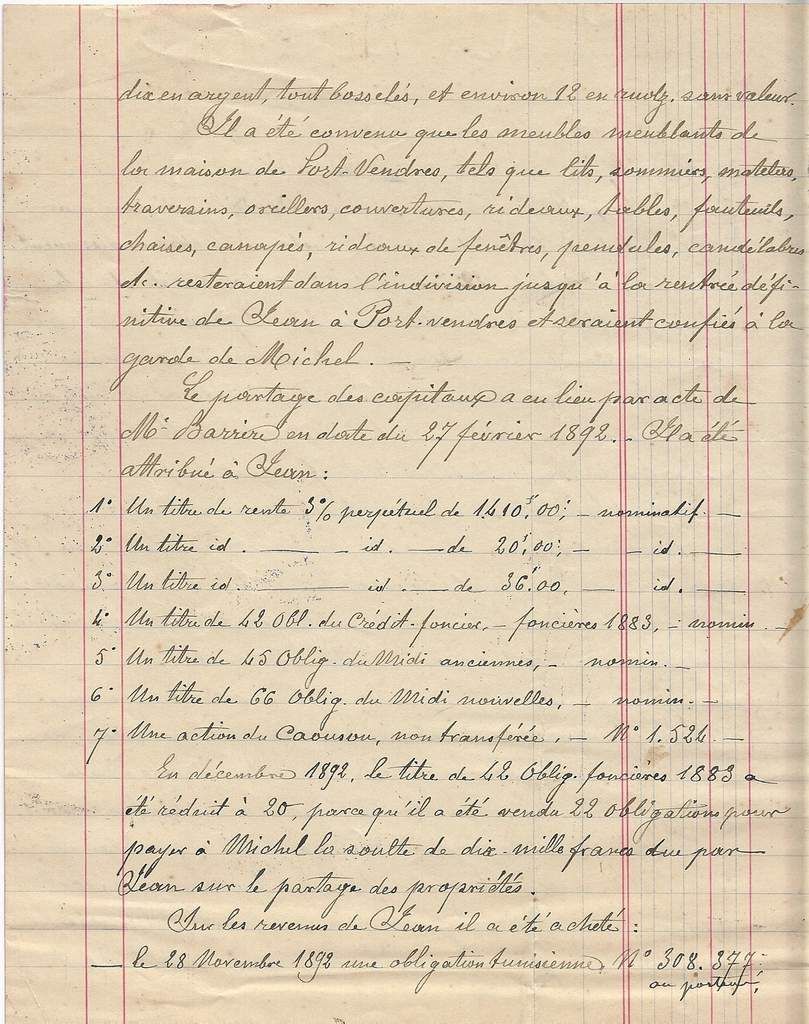 dix en argent, tout bosselés, et environ 12 en ruolz, sans valeur.
Il a été convenu que les meubles meublants de
la maison de Port-Vendres, tels que lits, sommiers, matelas,
traversins, oreillers, couvertures, rideaux, tables, fauteuils,
chaises, canapés, rideaux de fenêtres, pendules, candélabres
etc. resteraient dans l'indivision jusqu'à la rentrée défi-
nitive de Jean à Port-vendres et seraient confiés à la
garde de Michel. —
Le partage des capitaux a eu lieu par acte de
Me Barrire en date du 27 février 1892. Il a été
attribué à Jean :
1° Un titre de rente 3% perpétuel de 1410f,00; — nominatif. —
2° Un titre id. — id. — de 20f,00; — id. —
3° Un titre id. — id. — de 36f,00, — id. —
4° Un titre de 42 Obl. du Crédit-foncier, — foncières 1883, — nomin. —
5° Un titre de 45 Oblig. du Midi anciennes, — nomin. —
6° Un titre de 66 Oblig. du Midi nouvelles, — nomin. —
7° Une action du Caousou, non transférée, — N° 1.524. —
En décembre 1892, le titre de 42 Oblig. foncières 1883 a
été réduit à 20, parce qu'il a été vendu 22 obligations pour
payer à Michel la soulte de dix-mille francs due par
Jean sur le partage des propriétés.
Sur les revenus de Jean il a été acheté :
— le 28 Novembre 1892 une obligation tunisienne, N° 308.377.
au porteur;